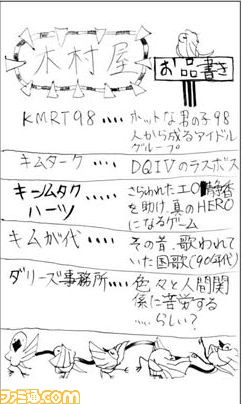 木村屋
お品書き
KMRT98‥‥ホットな男の子98
人から成るアイドル
グループ
キムターク‥‥DQIVのラスボス
キームタク‥‥さらわれた工〇静香
ハーツ
を助け、真のHERO
になるゲーム
キムが代‥‥‥その昔、歌われて
いた国歌(90年代)
ダリーズ事務所‥‥色々と人間関
係に苦労する
‥‥らしい?
ファミ通.com